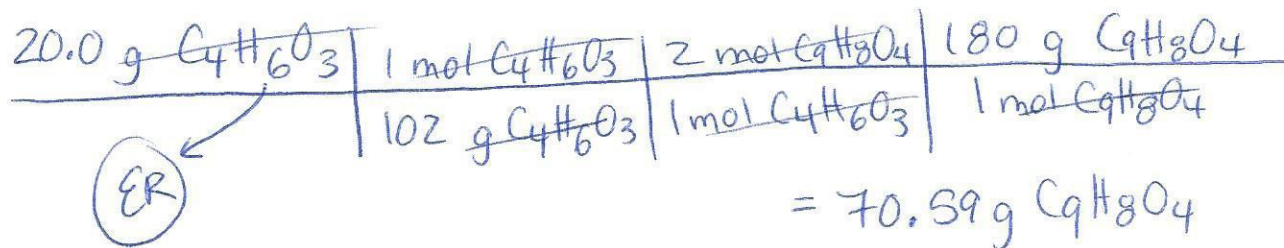 20.0 g C4H6O3 | 1 mol C4H6O3 | 2 mol C9H8O4 | 180 g C9H8O4
102 g C4H6O3 | 1 mol C4H6O3 | 1 mol C9H8O4
ER
= 70.59 g C9H8O4